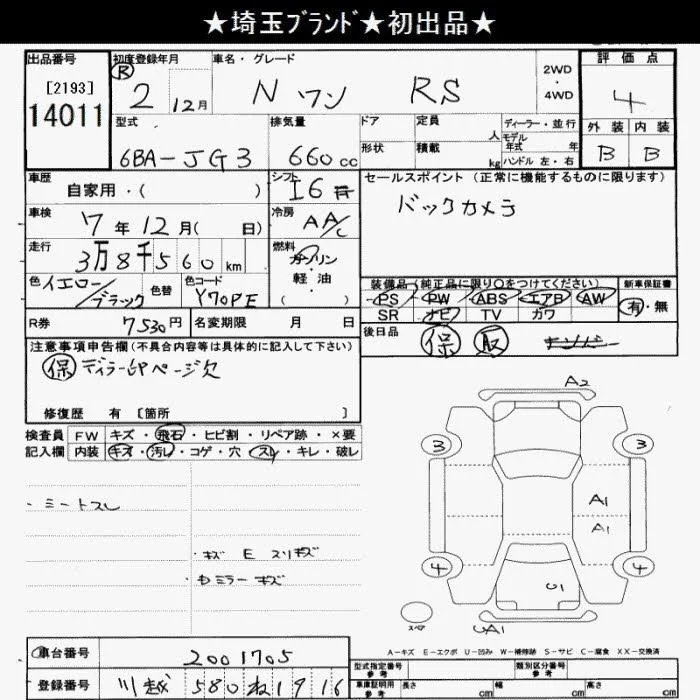 ★埼玉ﾌﾞﾗﾝﾄﾞ★初出品★
出品番号
[2193]
14011
初度登録年月
R 2 12月
車名・グレード
N ワン RS
2WD
・
4WD
評価点
4
外装 内装
B B
型式
6BA-JG3
排気量
660 cc
ドア
定員
人
形状
積載
kg
ディーラー・並行
モデル
年式 年
ハンドル 左・右
車歴
自家用・( )
シフト
I6
車検
7年12月( 日)
冷房
AA/C
走行
3万8千560 km
燃料
ガソリン
・
軽油
( )
色 イエロー/ブラック
色替
色コード
Y70PE
R券
7530円
名変期限 月 日
セールスポイント(正常に機能するものに限ります)
バックカメラ
装備品(純正品に限り○をつけてください)
PS PW ABS エアB AW
SR ナビ TV カワ
新車保証書
有・無
後日品
保 取
注意事項申告欄(不具合内容等は具体的に記入して下さい)
保 ディラー印ページ欠
修復歴 有 [箇所 ]
検査員
記入欄
FW キズ・飛石・ヒビ割・リペア跡・×要
内装 キズ・汚レ・コゲ・穴・スレ・キレ・破レ
・シートスレ
・キズ E スリキズ
・ミラーキズ
A2
3 3
A1
A1
4 4
U1
UA1
スペア
A-キズ E-エクボ U-凹み W-補修跡 S-サビ C-腐食 XX-交換済
車台番号
2001705
登録番号
川越 580 ね 1916
型式指定番号
参考
類別区分番号
参考
車庫証明用
参考
長さ cm 幅 cm 高さ cm